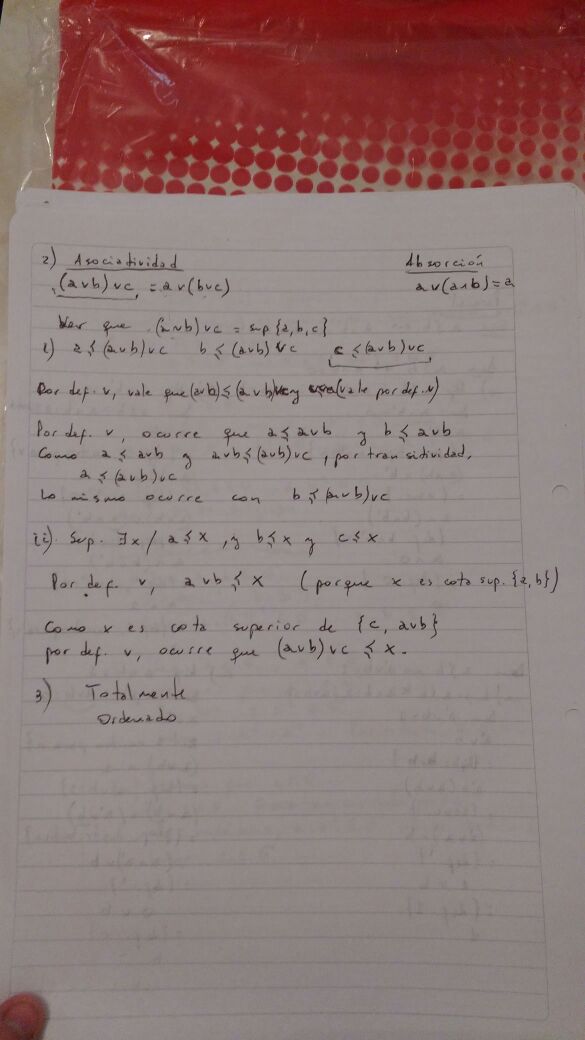 2) Asociatividad
(a∨b)∨c = a∨(b∨c)
Absorción
a∨(a∧b)=a
Ver que (a∨b)∨c = sup{a,b,c}
i) a≤(a∨b)∨c b≤(a∨b)∨c c≤(a∨b)∨c
Por def. ∨, vale que (a∨b)≤(a∨b)∨c y (vale por def. ∨)
Por def. ∨, ocurre que a≤a∨b y b≤a∨b
Como a≤a∨b y a∨b≤(a∨b)∨c, por transitividad,
a≤(a∨b)∨c
Lo mismo ocurre con b≤(a∨b)∨c
ii) Sup. ∃x/ a≤x, y b≤x y c≤x
Por def. ∨, a∨b≤x (porque x es cota sup. {a,b})
Como x es cota superior de {c, a∨b}
por def. ∨, ocurre que (a∨b)∨c ≤ x.
3) Totalmente
Ordenado